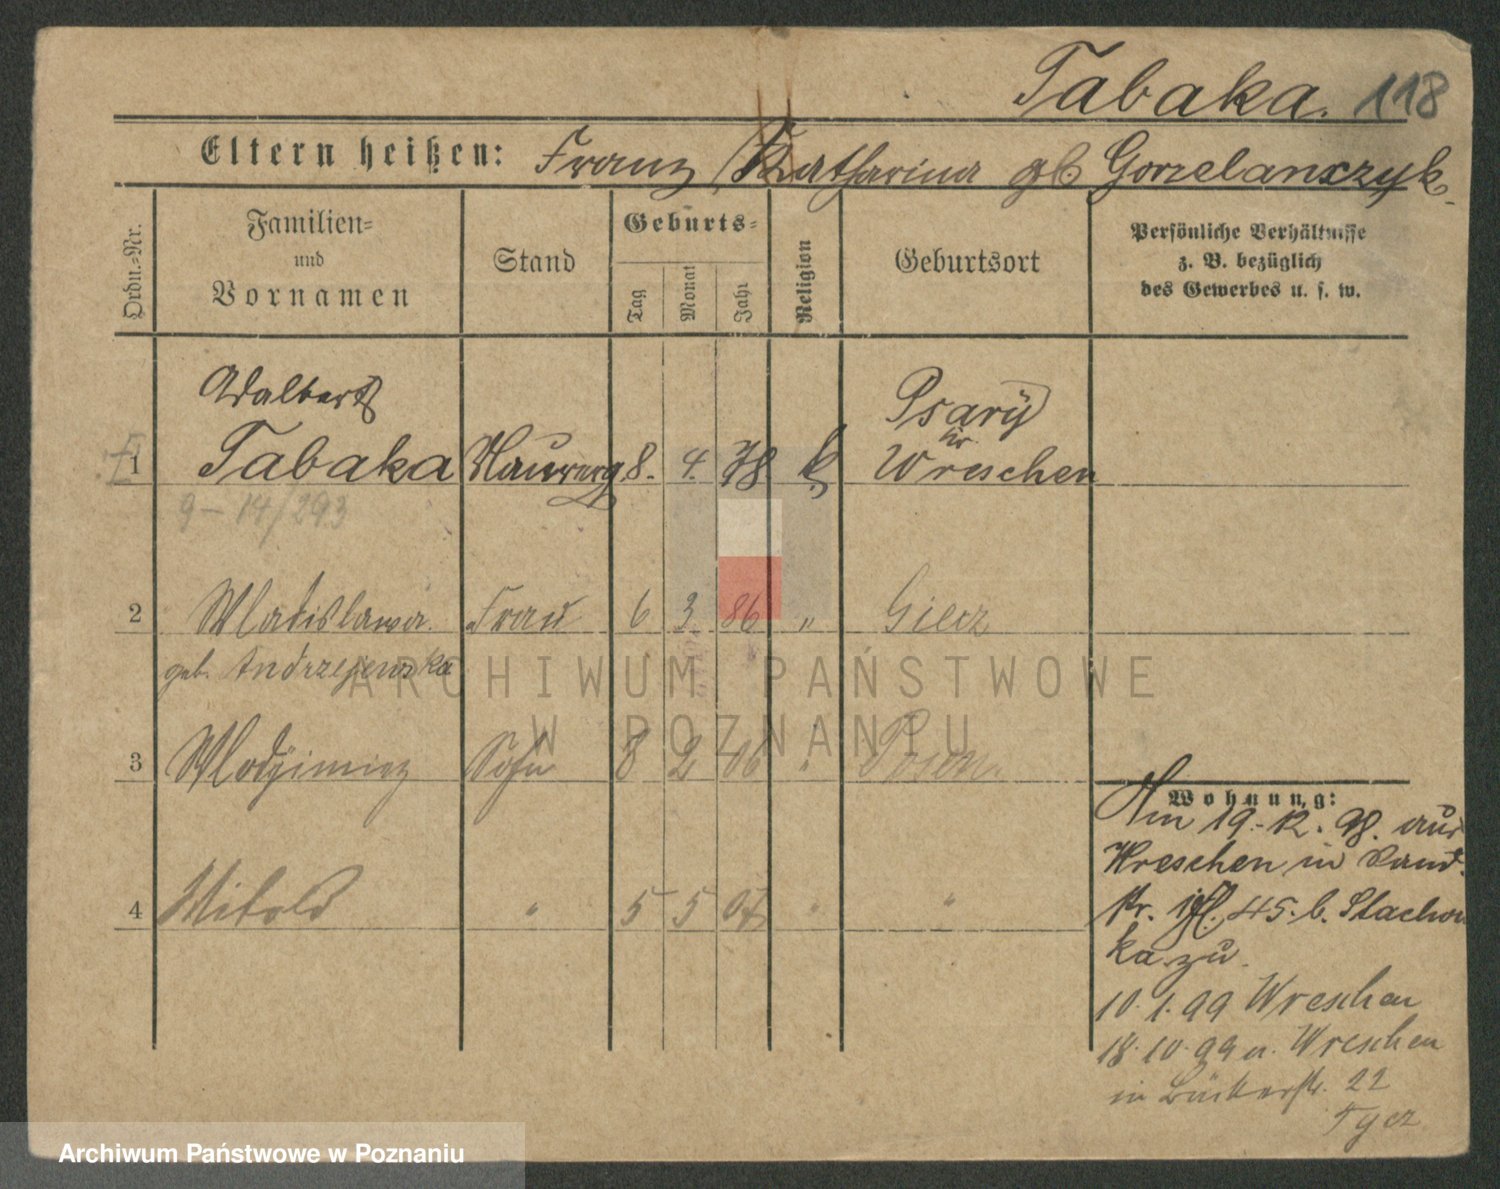 Tabaka. 118
Eltern heißen: Franz / Katharina gb Gorzelanczyk
Ordn.-Nr.
Familien- und Vornamen
Stand
Geburts-
Tag
Monat
Jahr
Religion
Geburtsort
Persönliche Verhältnisse
z. B. bezüglich
des Gewerbes u. s. w.
Adalbert Psary
1 Tabaka 8. 4. 78 k. Kr. Wreschen
9-14/293
2 Wladislawa Frau 6 3 86 " Giecz
geb. Andrzejewska
3 Wlodzimierz Sohn 8 2 06 " Posen
4 Witold " 5 5 07 " "
Wohnung:
Am 19.-12. 98. aus
Wreschen in
45. b. Stachow
ka zu.
10. 1. 99 Wreschen
18. 10. 99 a. Wreschen
in Bäckerstr. 22
ARCHIWUM PAŃSTWOWE
W POZNANIU
Archiwum Państwowe w Poznaniu